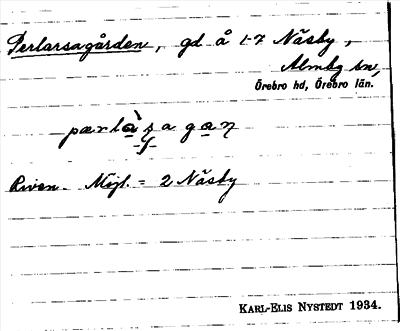 Perlarsagården, gd å 1-7 Näsby,
Almby sn,
Örebro hd, Örebro län.
Riven. Mojl. = 2 Näsby
KARL-ELIS NYSTEDT 1934.